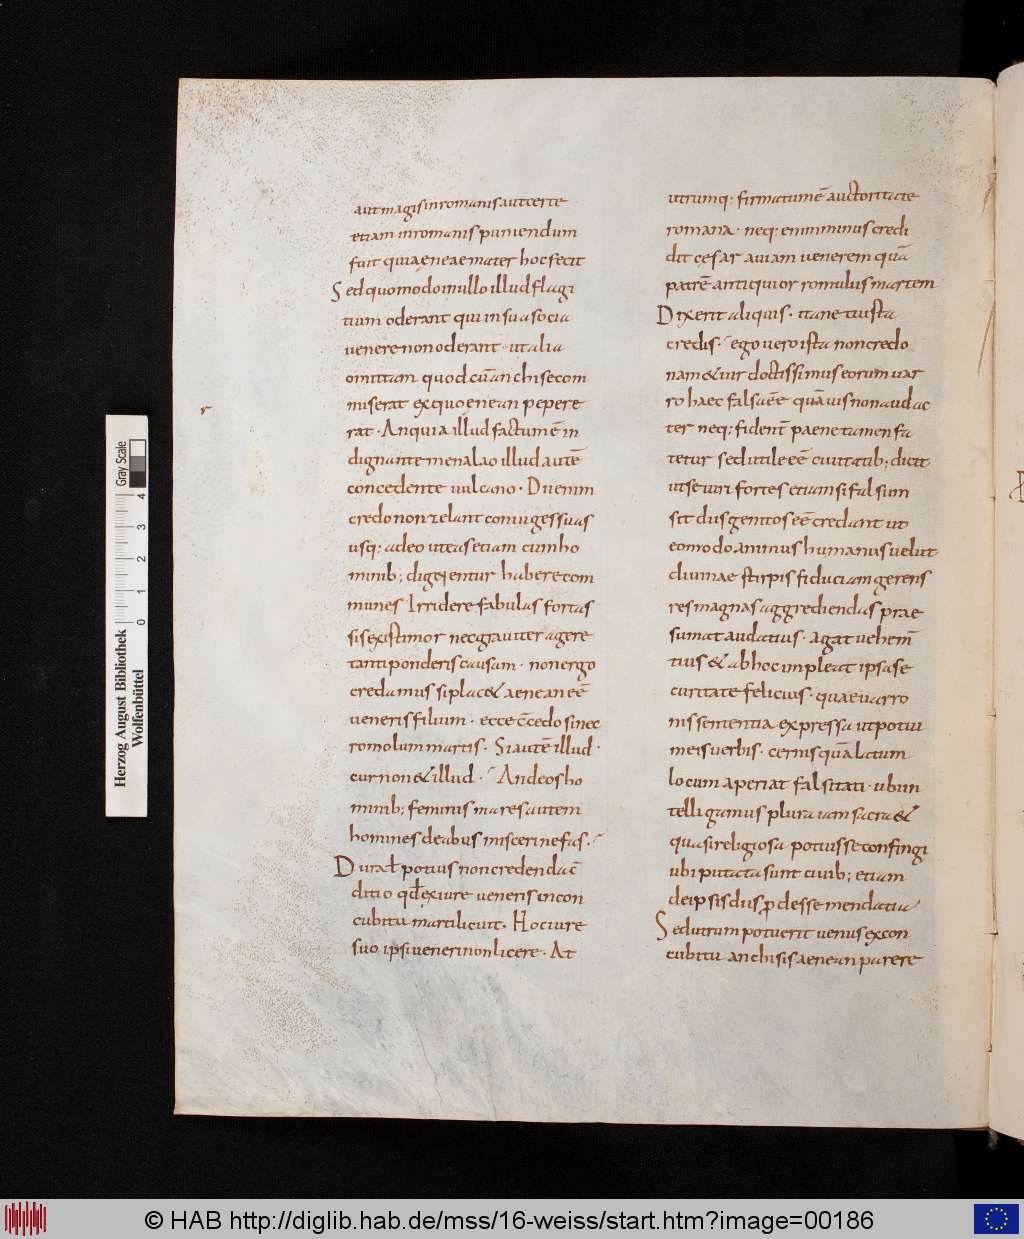 aut magis in romanis aut certe
etiam in romanis puniendum
fuit quia eneae mater hoc fecit
Sed quomodo in ullo illud flagi
tium oderant qui in sua socia
venere non oderant · ut alia
omittam quod cū anchise com
miserat ex quo enean pepere
rat · An quia illud factum ē in
dignante menalao illud autē
concedente vulcano · Dii enim
credo non zelant coniuges suas
usq; adeo ut eas etiam cum ho
minib; dignentur habere com
munes Irridere fabulas fortas
sis existimor nec graviter agere
tanti ponderis causam · non ergo
credamus si plac& aenean eē
veneris filium · ecce cēcedo si nec
romolum martis · Si autē illud ·
cur non & illud · An deos ho
minib; feminis mares autem
homines deabus misceri nefas ·
Dura ł potius non credenda cō
ditio qđ ex iure veneris in con
cubitu marti licuit · Hoc iure
suo ipsi veneri non licere · At
utrumq; firmatum ē auctoritate
romana · neq; enim minus credi
dit cesar aviam venerem quā
patrē antiquior romulus martem
Dixerit aliquis · itane tu ista
credis · ego vero ista non credo
nam & vir doctissimus eorum var
ro haec falsa eē quāvis non audac
ter neq; fident̄ paene tamen fa
tetur sed utile eē civitatib; dicit
ut se viri fortes etiam si falsum
sit diis genitos eē credant ut
eo modo animus humanus velut
divinae stirpis fiduciam gerens
res magnas aggrediendas prae
sumat audatius · agat vehem̄
tius & ab hoc impleat ipsa se
curitate felicius · quae varro
nis sententia expressa ut potui
meis verbis · cernis quā latum
locum aperiat falsitati · ubi in
telligamus plura iam sacra &
quasi religiosa potuisse confingi
ubi putata sunt civib; etiam
de ipsis diis p̄desse mendatia
Sed utrum potuerit venus ex con
cubitu anchisis aenean parere
r
Herzog August Bibliothek
Wolfenbüttel
Gray Scale
0 1 2 3 4
© HAB http://diglib.hab.de/mss/16-weiss/start.htm?image=00186